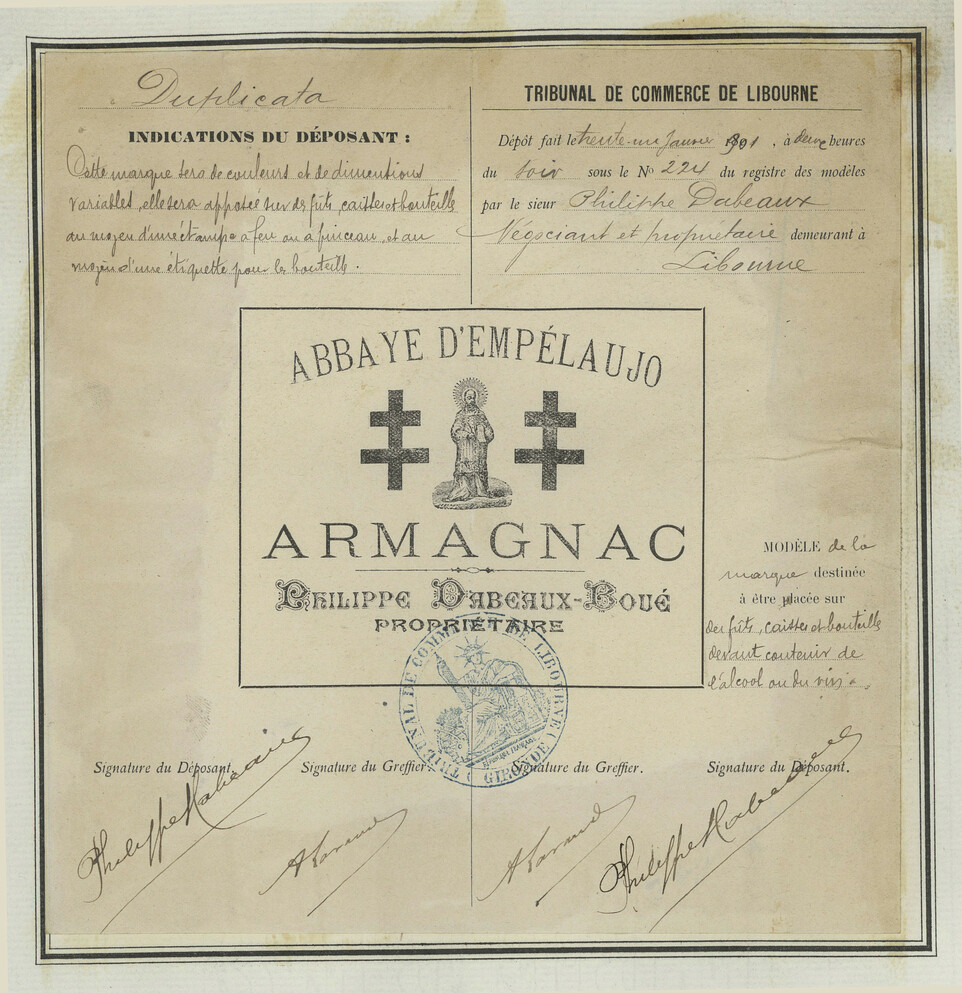 Duplicata
INDICATIONS DU DÉPOSANT :
Cette marque sera de couleurs et de dimentions
variables, elle sera apposée sur des fûts, caisses et bouteille
au moyen d'une éstampe à feu ou a pinceau, et au
moyen d'une étiquette pour les bouteille.
TRIBUNAL DE COMMERCE DE LIBOURNE
Dépôt fait le trente-un Janvier 1891, à deux heures
du soir sous le No 224 du registre des modèles
par le sieur Philippe Dabeaux
Négociant et propriétaire demeurant à
Libourne
ABBAYE D'EMPÉLAUJO
ARMAGNAC
PHILIPPE DABEAUX-BOUÉ
PROPRIÉTAIRE
MODÈLE de la
marque destinée
à être placée sur
des fûts, caisses et bouteille
devant contenir de
l'alcool ou du vin.
TRIBUNAL DE COMMERCE DE LIBOURNE (GIRONDE)
RÉPUBLIQUE FRANÇAISE
Signature du Déposant. Signature du Greffier. Signature du Greffier. Signature du Déposant.
Philippe Dabeaux
Philippe Dabeaux